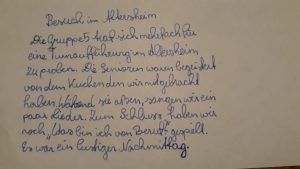 Besuch im Altersheim
Die Gruppe 5 traf sich mehrfach für
eine Turnaufführung im Altersheim
zu proben. Die Senioren waren begeistert
von dem Kuchen den wir mitgebracht
haben. Während sie aßen, sangen wir ein
paar Lieder. Zum Schluss haben wir
noch „Was bin ich von Beruf“ gespielt.
Es war ein lustiger Nachmittag.